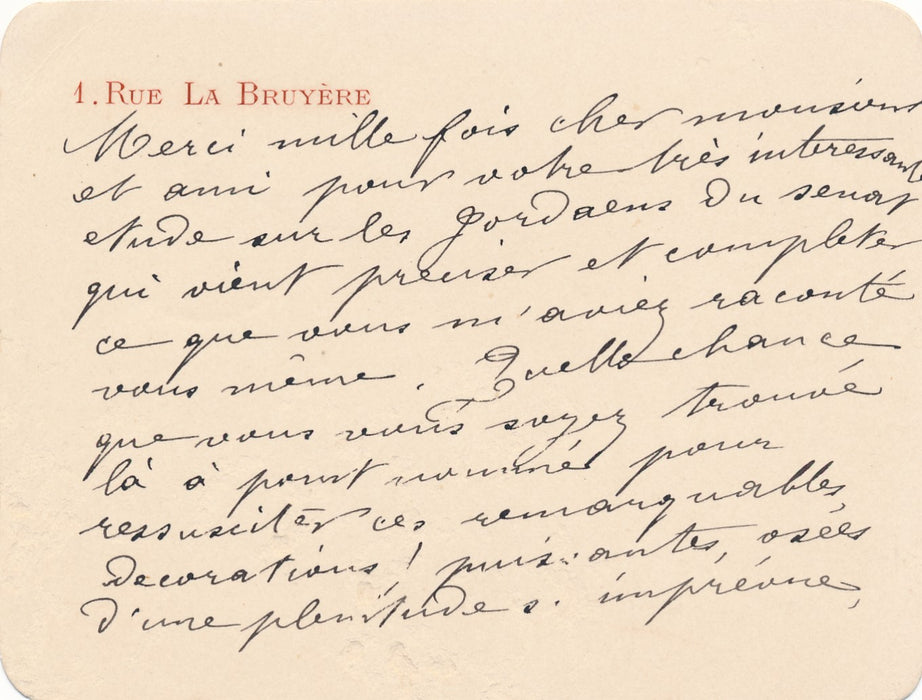 1. RUE LA BRUYÈRE
Merci mille fois cher monsieur
et ami pour votre très interessante
etude sur les Jordaens du senat
qui vient preciser et completer
ce que vous m'aviez raconté
vous même. Quelle chance
que vous vous soyez trouvé
là à point nommé pour
ressusciter ces remarquables
decorations! puissantes, osées
d'une plenitude si imprévue,